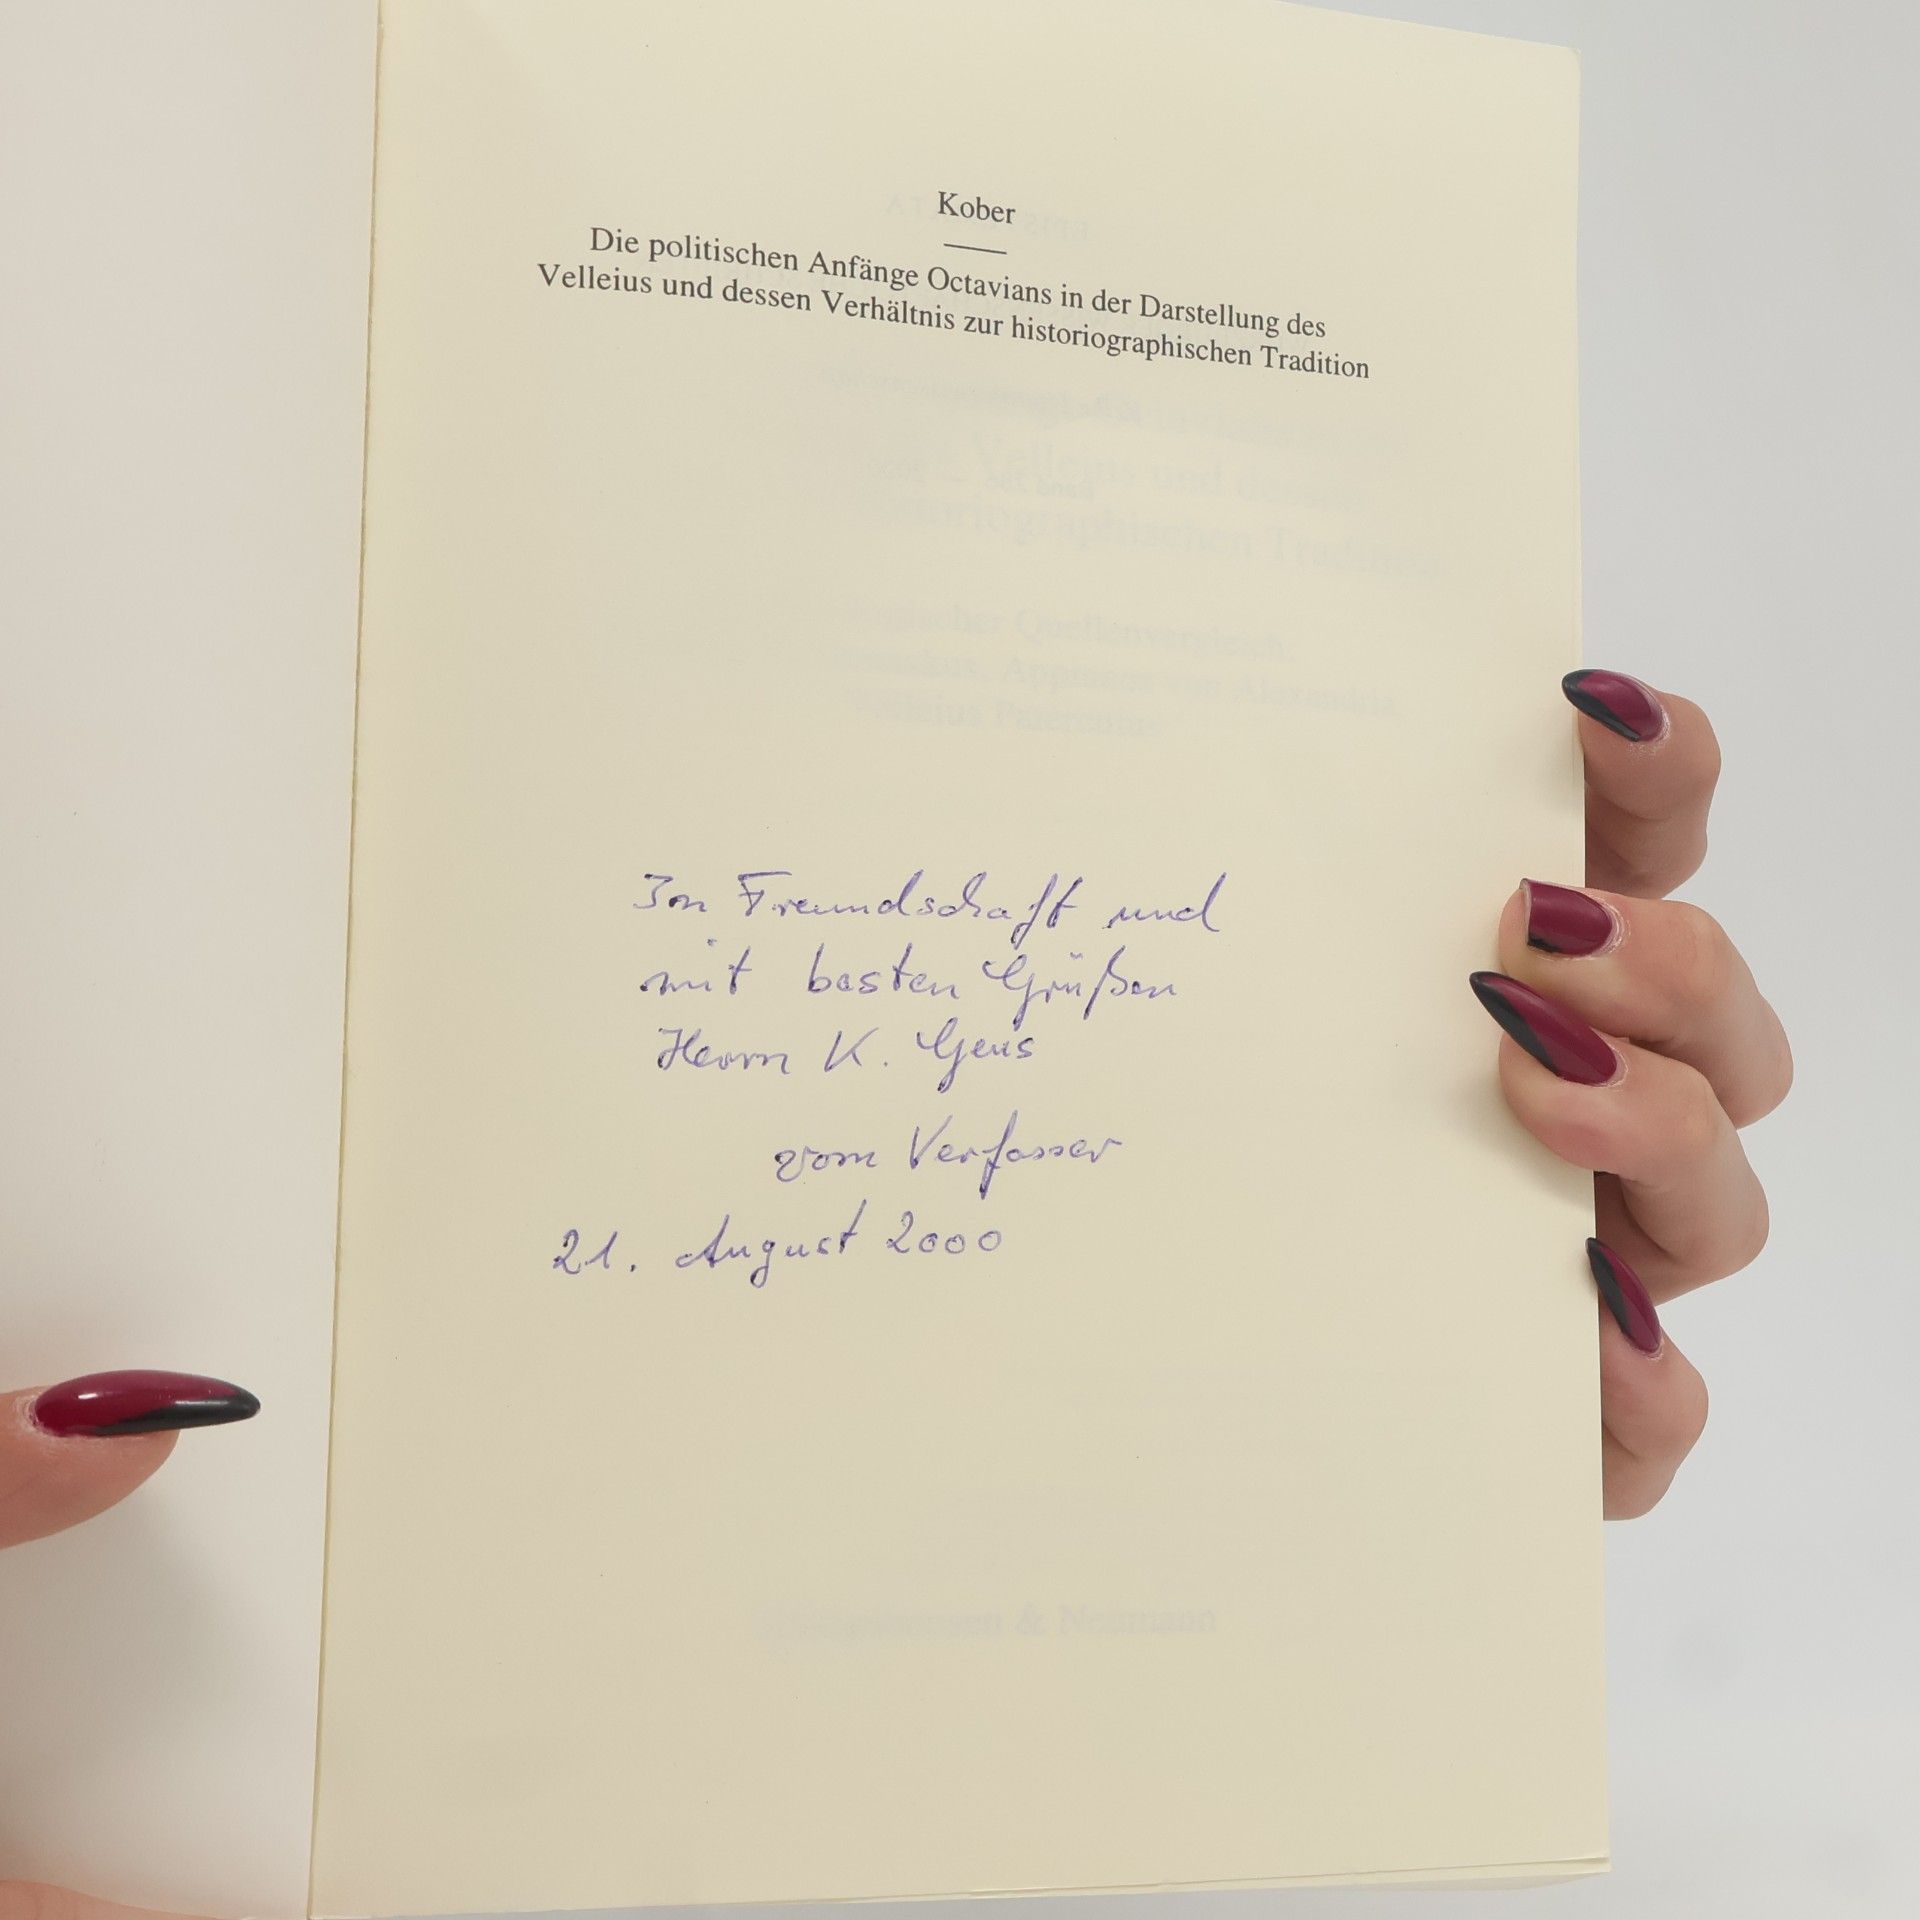 Kober
Die politischen Anfänge Octavians in der Darstellung des
Velleius und dessen Verhältnis zur historiographischen Tradition
In Freundschaft und
mit besten Grüßen
Herrn K. Geus
vom Verfasser
21. August 2000